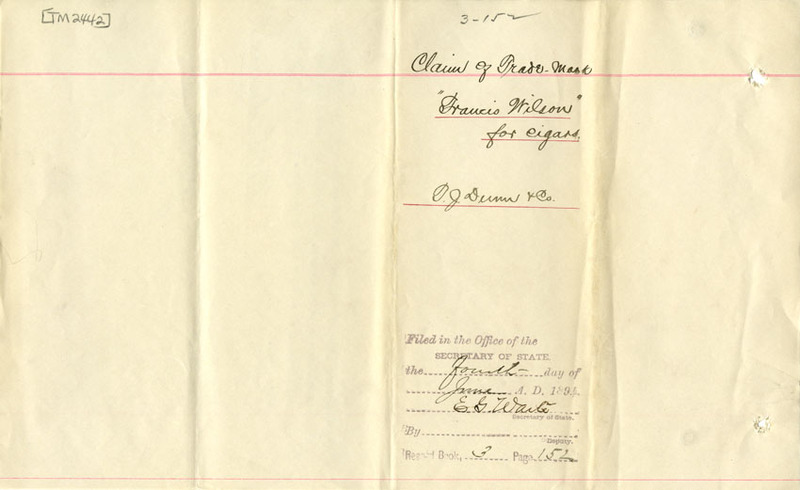 [TM2442]
3-152
Claim of Trade-Mark
"Francis Wilson"
for cigars.
T. J. Dunn & Co.
Filed in the Office of the
SECRETARY OF STATE.
the Fourth day of
June A. D. 1894.
E. G. Waite
Secretary of State.
By
Deputy.
Record Book, 3 Page 152